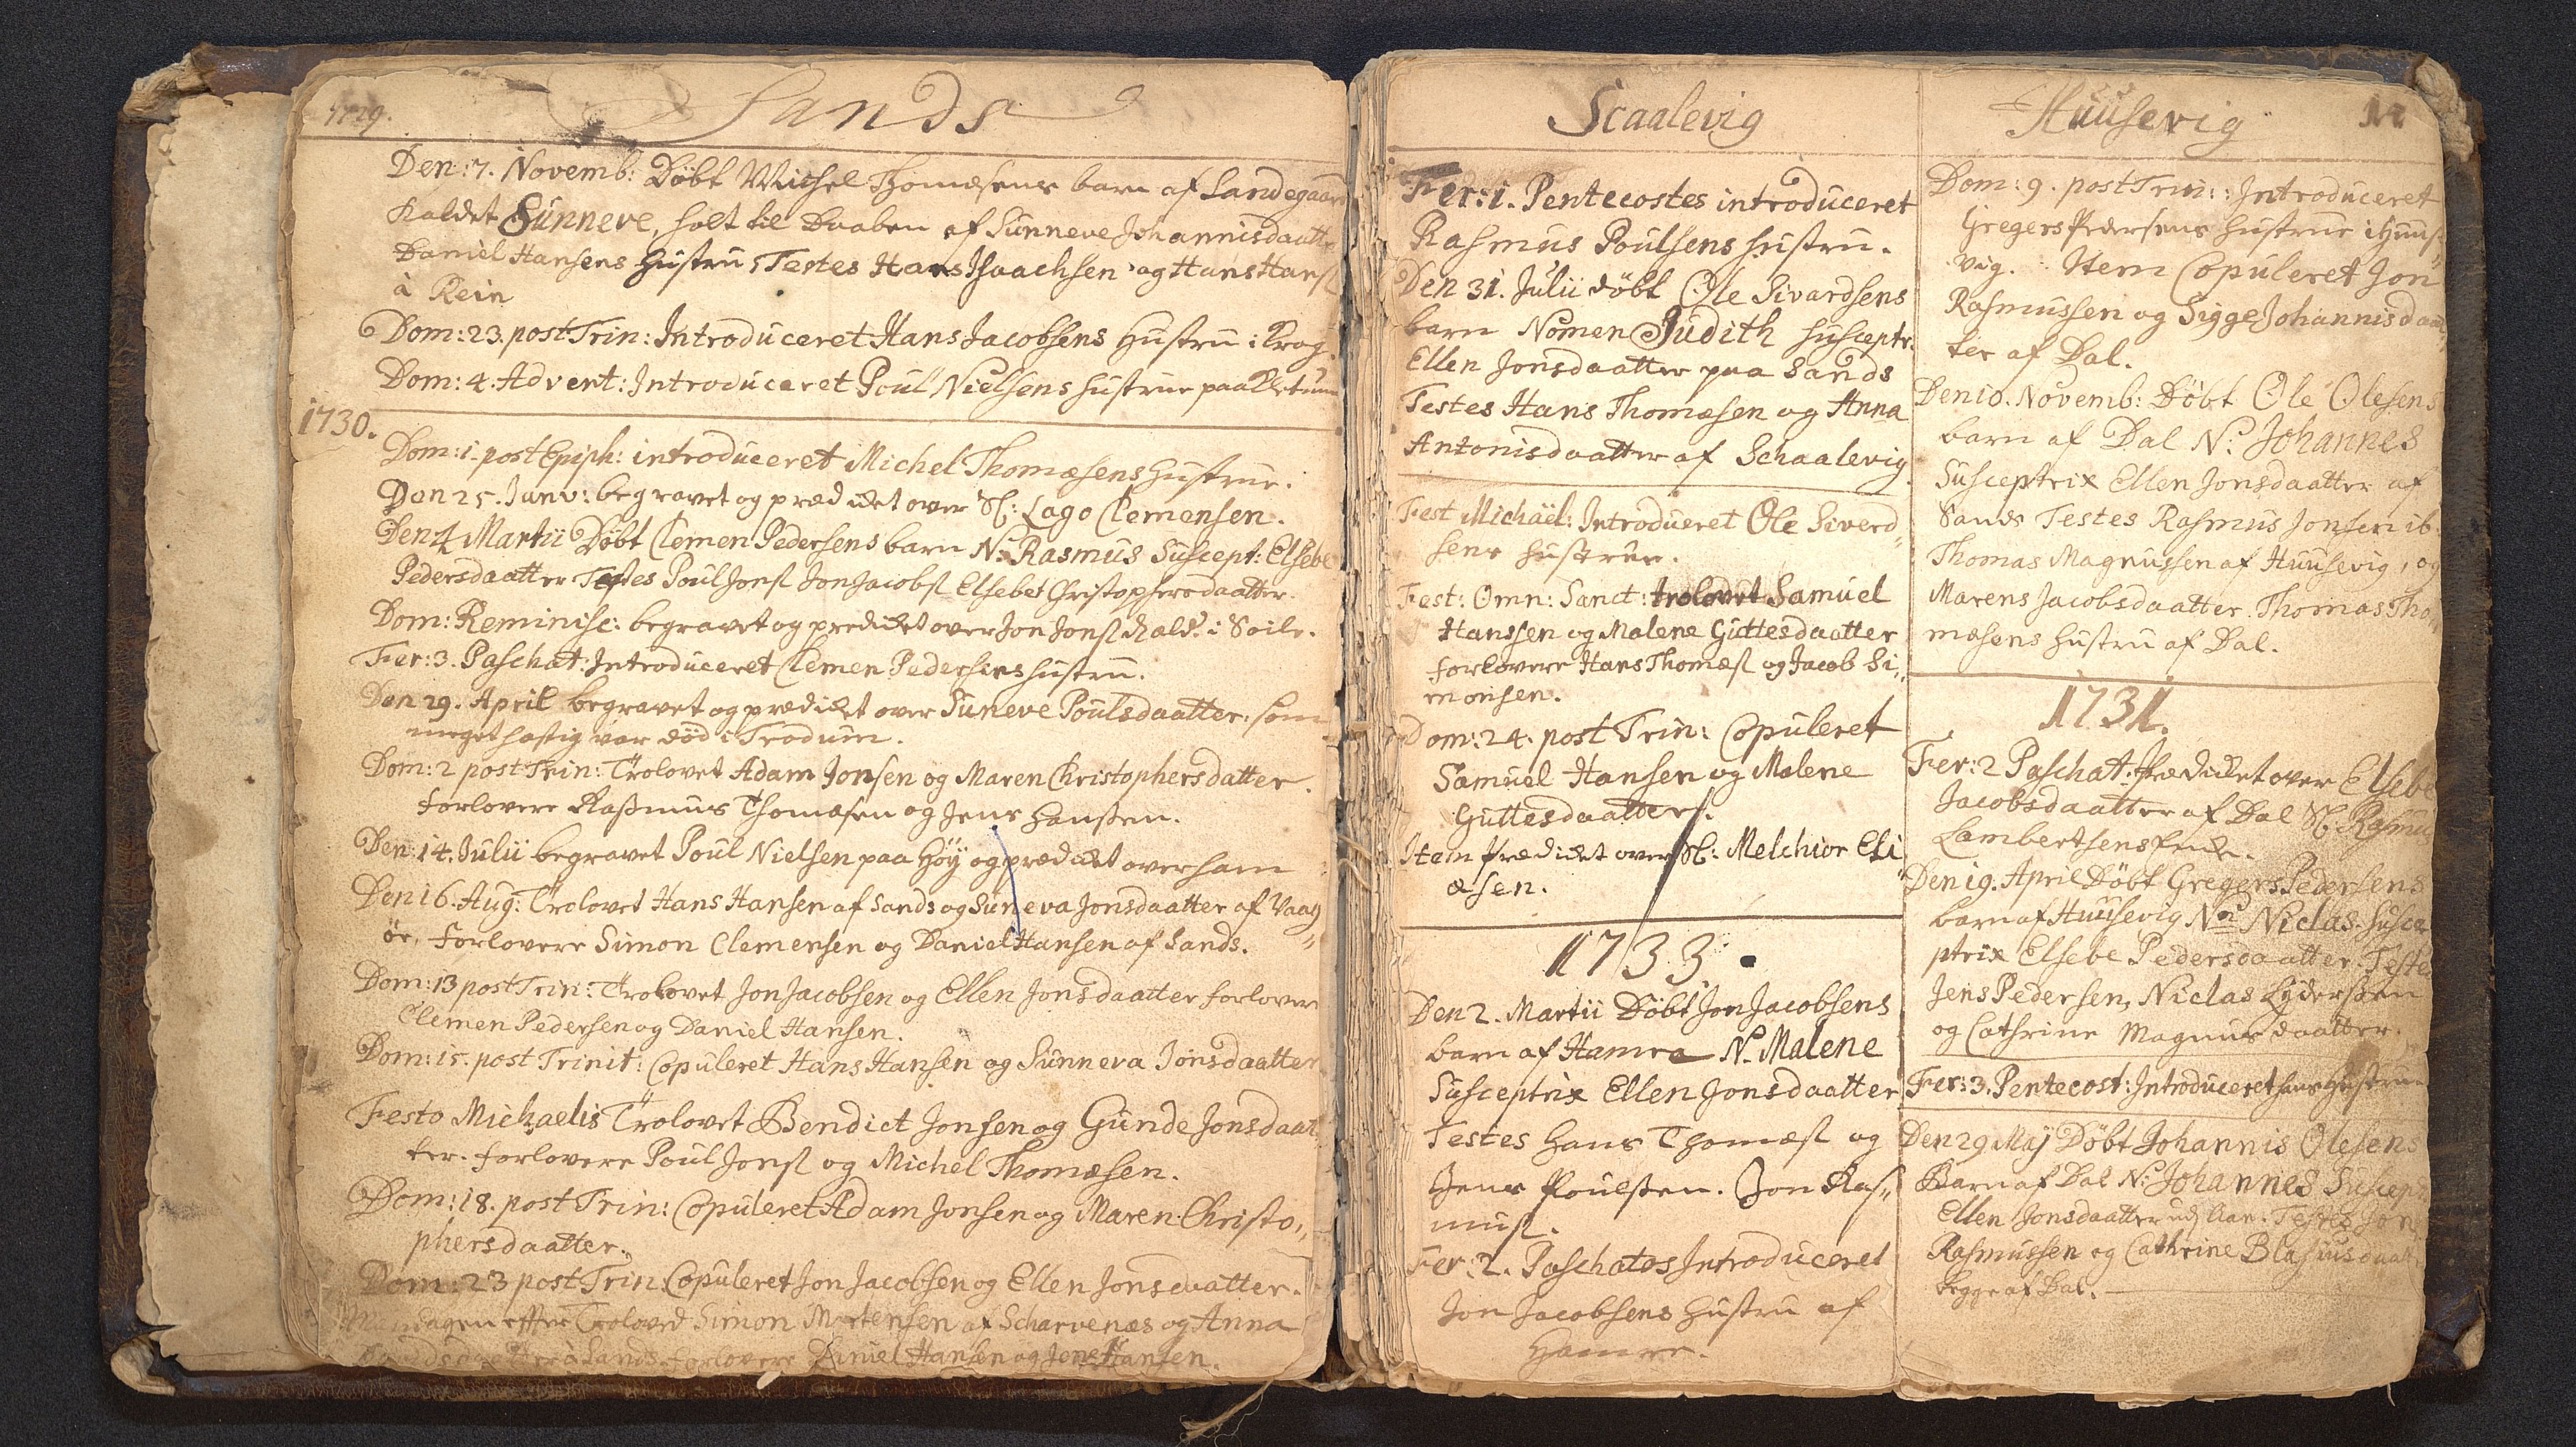 1729.
Sands
Den: 7. Novemb: Döbt Michel Thomæsens barn af Sandegaard
Kaldet Sünneve, holt til Daaben af Sünneve Johannisdaatter
Daniel Hansens Hustru, Testes Hans Isaachsen og Hans Hansſ
à Rein
Dom: 23. post Trin: Introduceret Hans Jacobsens Hustru i Krog.
Dom: 4. Advent: Introduceret Poul Nielsens Hustrue paa
1730.
Dom: 1. post Epiph: introduceret Michel Thomæsens Hustrue.
Den 25. Janv: begravet og prædicket over Sl: Lago Clemensen.
Den 4 Martii Döbt Clemen Pedersens barn N: Rasmus Suscept: Elsebe
Pedersdaatter Testes Poul Jonſ Jon Jacobſ Elsebet Christophersdaatter.
Dom: Reminisc: begravet og predicket over Jon Jonſ kald: i Soile.
Fer: 3. Paschat: Introduceret Clemen Pedersens Hustru.
Den 29. April begravet og prædicket over Süneve Poulsdaatter, som
meget hastig var död i Trödum.
Dom: 2 post Trin: Trolovet Adam Jonsen og Maren Christophersdatter.
Forlovere Rasmus Thomæsen og Jens Hanssen.
Den 14. Julii begravet Poul Nielsen paa Höy og prædicket over ham
Den 16. Aug: Trolovet Hans Hansen af Sands og Süneva Jonsdaatter af Vaag
öe, Forlovere Simon Clemensen og Daniel Hansen af Sands.
Dom: 13 post Trin: Trolovet Jon Jacobsen og Ellen Jonsdaatter Forlovere
Clemen Pedersen og Daniel Hansen.
Dom: 15. post Trinit: Copuleret Hans Hansen og Sünneva Jonsdaatter
Festo Michaelis Trolovet Bendict Jonsen og Günde Jonsdaat
ter. Forlovere Poul Jonſ og Michel Thomæsen.
Dom: 18. post Trin: Copuleret Adam Jonsen og Maren Christo,,
phersdaatter.
Dom: 23 post Trin Copuleret Jon Jacobsen og Ellen Jonsdaatter.
Mandagen effter Troloved Simon Mortensen af Scharvenæs og Anna
à Sands. Forlovere Daniel Hansen og Jens Hansen.
Scaalevig
Fer: 1. Pentecostes introduceret
Rasmus Poulsens Hustru.
Den 31. Julii döbt Ole Sivardsens
barn Nomen Judith suscepts.
Ellen Jonsdaatter paa Sands
Testes Hans Thomæsen og Anna
Antonisdaatter af Schaalevig
Fest Michaël: Introduceret Ole Siverd
sens Hustrue.
Fest: Omn: Sanct: trolovet Samuel
Hanssen og Malene Guttesdaatter
forlovere Hans Thomæſ og Jacob Si,,
monsen.
Dom: 24. post Trin: Copuleret
Samuel Hansen og Malene
Guttesdaatter.
Item prædicket over Sl: Melchior Eli
æsen.
1733.
Den 2. Martii Döbt Jon Jacobsens
barn af Hamra N. Malene
Susceptrix Ellen Jonsdaatter
Testes Hans Thomæſ og
Jens Poulssen. Jon Ras,,
musſ.
Fer: 2. Paschatos Introduceret
Jon Jacobsens Hustru af
Hamre.
Huusevig
Dom: 9. post Trin: Introduceret
Gregers Pedersens Hustrue i Huus
vig. Item Copuleret Jon
Rasmussen og Sigge Johannisdaat
ter af Dal.
Den 10. Novemb: Döbt Ole Olesens
barn af Dal N: Johannes
Susceptrix Ellen Jonsdaatter af
Sands Testes Rasmus Jonsen ib:
Thomas Magnussen af Huusevig, og
Marens Jacobsdaatter. Thomas Tho
mæsens Hustru af Dal.
1731.
Fer: 2 Paschat: prædicket over Elsebe
Jacobsdaatter af Dal Sl: Rasmus
Lambertsens Encke.
Den 19. April Döbt Gregers Pedersens
barn af Huusevig N Niclas. Susce
ptrix Elsebe Pedersdaatter. Testes
Jens Pedersen, Niclas Lyderssen
og Cathrine Magnusdaatter.
Fer: 3. Pentecost: Introduceret hans Hustrue
Den 29 Maj Döbt Johannis Olesens
Barn af Dal N: Johannes Suscept
Ellen Jonsdaatter Testes Jon
Rasmussen og Cathrine Blasiusdaat
begge af Dal.